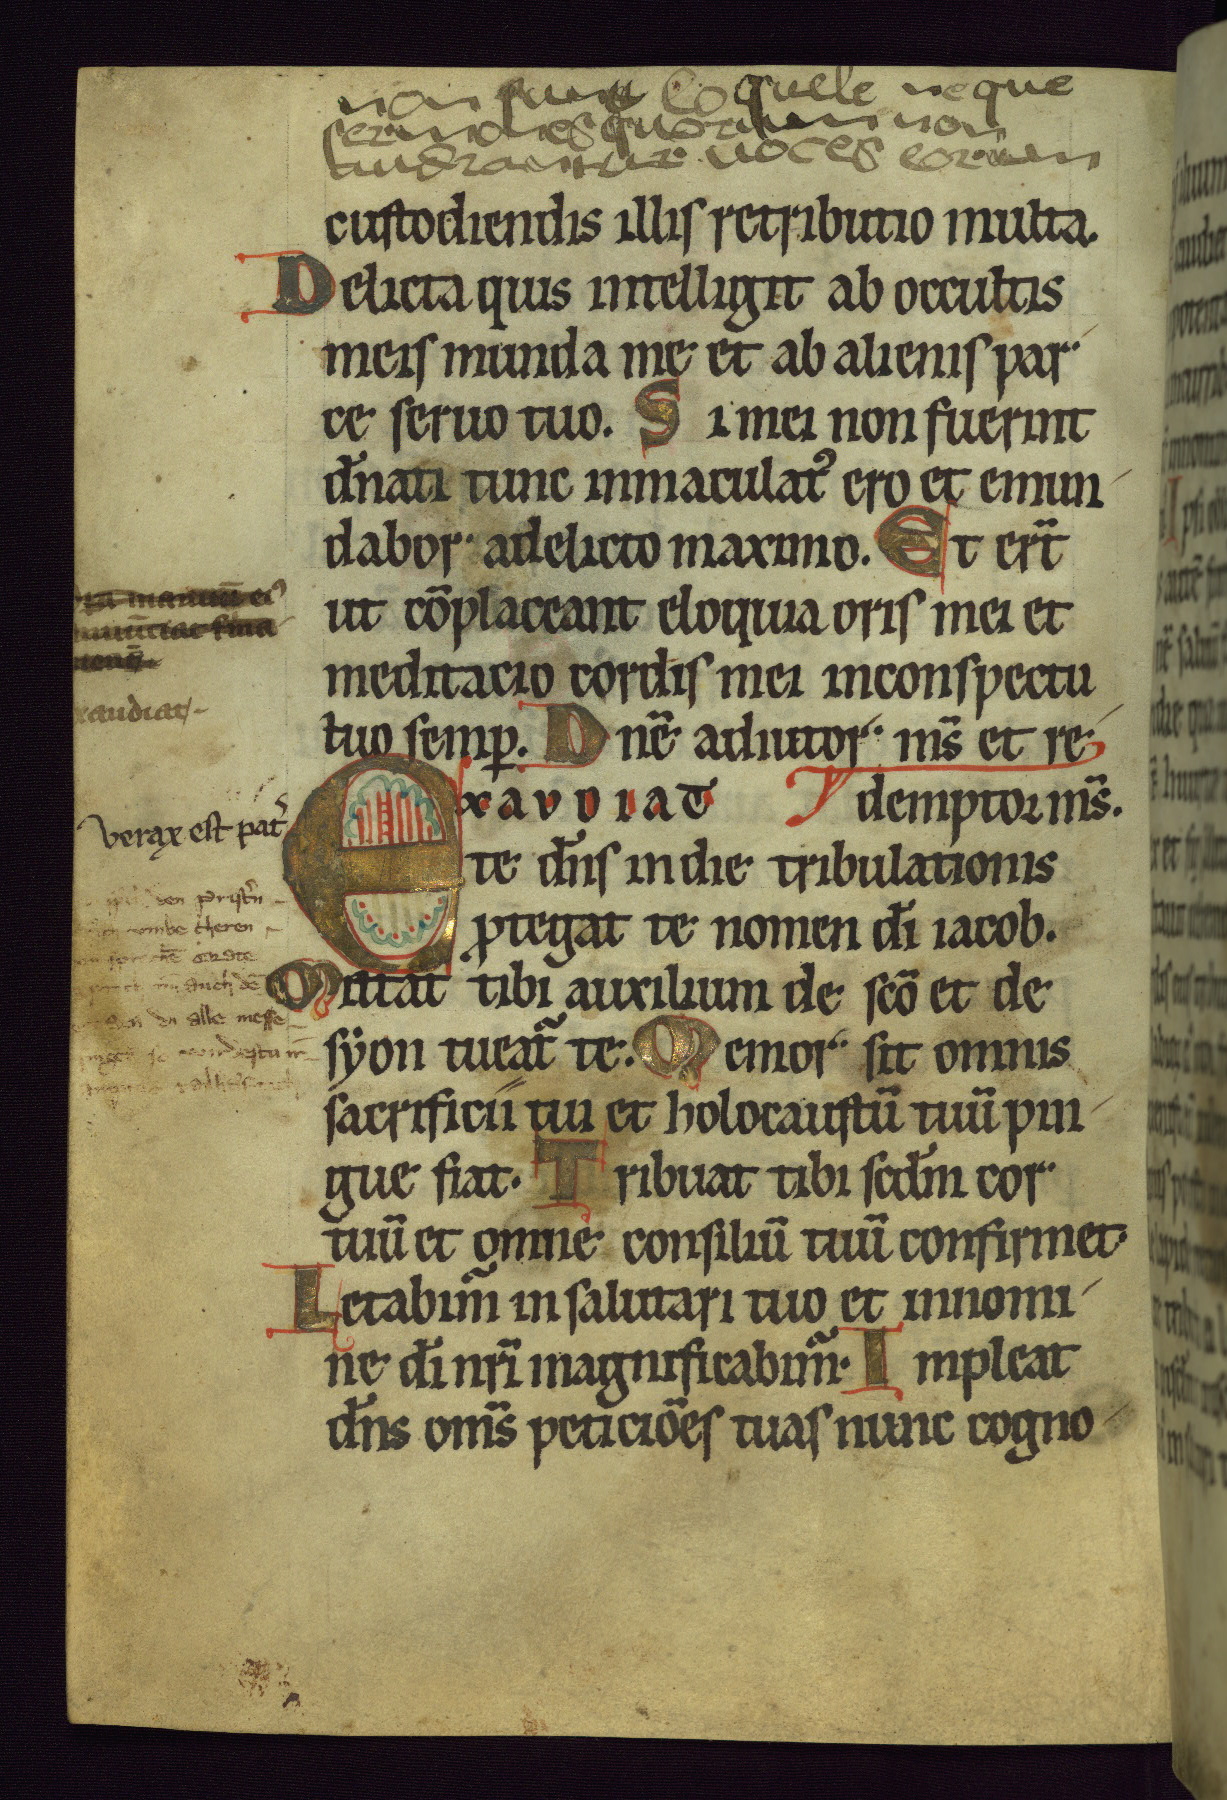 non sunt loquele neque
sermones quorum non
audiantur voces eorum
custodiendis illis retributio multa.
Delicta quis intelligit ab occultis
meis munda me et ab alienis par
ce seruo tuo. Si mei non fuerint
dn̄ati tunc inmaculatꝰ ero et emun
dabor adelicto maximo. Et erīt
ut cōplaceant eloquia oris mei et
meditacio cordis mei inconspectu
tuo semꝑ. Dn̄e adiutor m̄s et re
EXAVDIAT demptor m̄s.
te dn̄s indie tribulationis
ꝓtegat te nomen dī iacob.
Mittat tibi auxilium de scō et de
syon tueat᷑ te. Memor sit omnis
sacrificii tui et holocaustū tuū pin
gue fiat. Tribuat tibi scdm̄ cor
tuū et omne consiliū tuū confirmet.
Letabim᷑ in salutari tuo et innomi
ne dī nr̄i magnificabim᷑. Impleat
dn̄s om̄s peticiōes tuas nunc cogno
exaudiat
verax est pat̄
alle messe